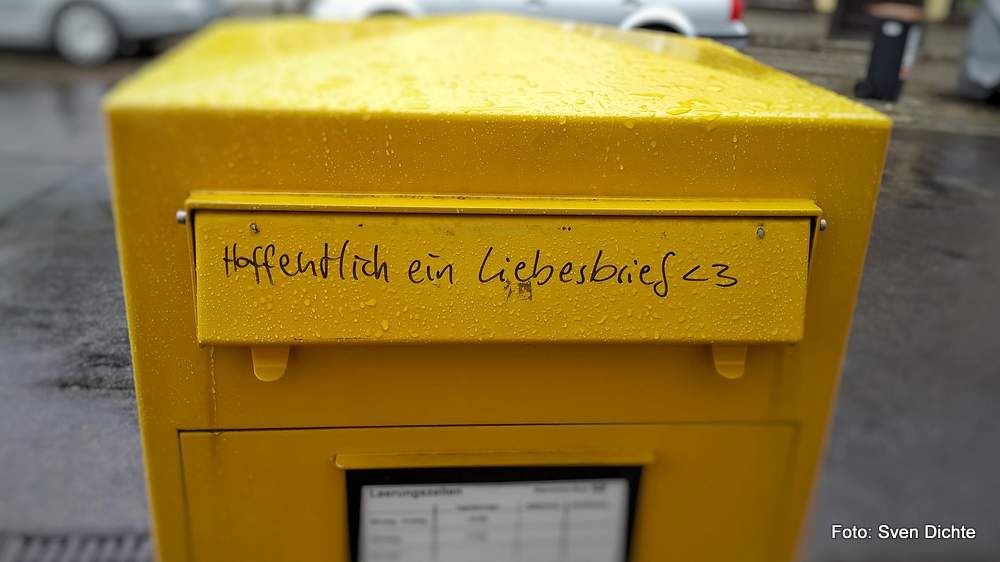 Hoffentlich ein Liebesbrief <3
Leerungszeiten
Foto: Sven Dichte